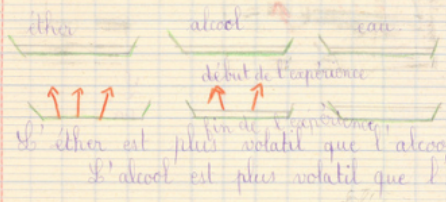 éther alcool eau
début de l'expérience
fin de l'expérience.
L'éther est plus volatil que l'alcoo
L'alcool est plus volatil que l'